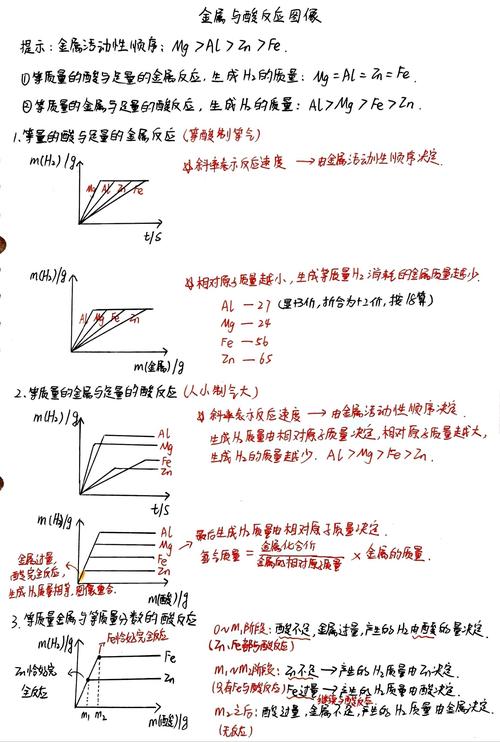 金属与酸反应图像
提示：金属活动性顺序：Mg＞Al＞Zn＞Fe.
①等质量的酸与足量的金属反应，生成H₂的质量：Mg=Al=Zn=Fe
②等质量的金属与足量的酸反应，生成H₂的质量：Al＞Mg＞Fe＞Zn.
1.等量的酸与足量的金属反应（等酸制等气）
m(H₂)/g
Mg Al Zn Fe
t/s
斜率表示反应速度 → 由金属活动性顺序决定.
m(H₂)/g
Al Mg Fe Zn
m(金属)/g
相对原子质量越小，生成等质量H₂消耗的金属质量越少.
Al — 27（显+3价，折合为+2价，按18算）
Mg — 24
Fe — 56
Zn — 65
2.等质量的金属与足量的酸反应（人小制气大）
m(H₂)/g
Al
Mg
Fe
Zn
t/s
斜率表示反应速度 → 由金属活动性顺序决定.
生成H₂质量由相对原子质量决定，相对原子质量越大，
生成H₂的质量越少. Al＞Mg＞Fe＞Zn.
m(H₂)/g
Al
Mg
Fe
Zn
m(酸)/g
金属过量，
酸完全反应，
生成H₂质量相等，图像重合.
最后生成H₂质量由相对原子质量决定.
氢气质量 = 金属化合价 / 金属的相对原子质量 × 金属的质量.
3.等质量金属与等质量分数的酸反应
m(H₂)/g
Fe恰好完全反应
Fe
Zn恰好完全反应
Zn
m₁ m₂
m(酸)/g
0~m₁阶段：酸不足，金属过量，产生的H₂由酸的量决定.
（Zn、Fe都与酸反应）
m₁~m₂阶段：Zn不足 → 产生的H₂质量由Zn决定.
（只有Fe与酸反应）Fe过量 → 产生的H₂质量由酸决定.
继续与酸反应
m₂之后：酸过量，金属不足，产生的H₂质量由金属决定
（无反应）